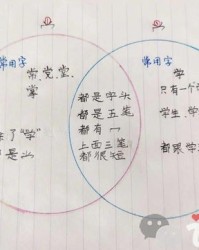 常用字
常、党、堂、
掌
除了“学”
都是
都是字头
都是五笔
都有冖
上面三笔
都很短
常用字
学
只有一个
学生、学
都跟学